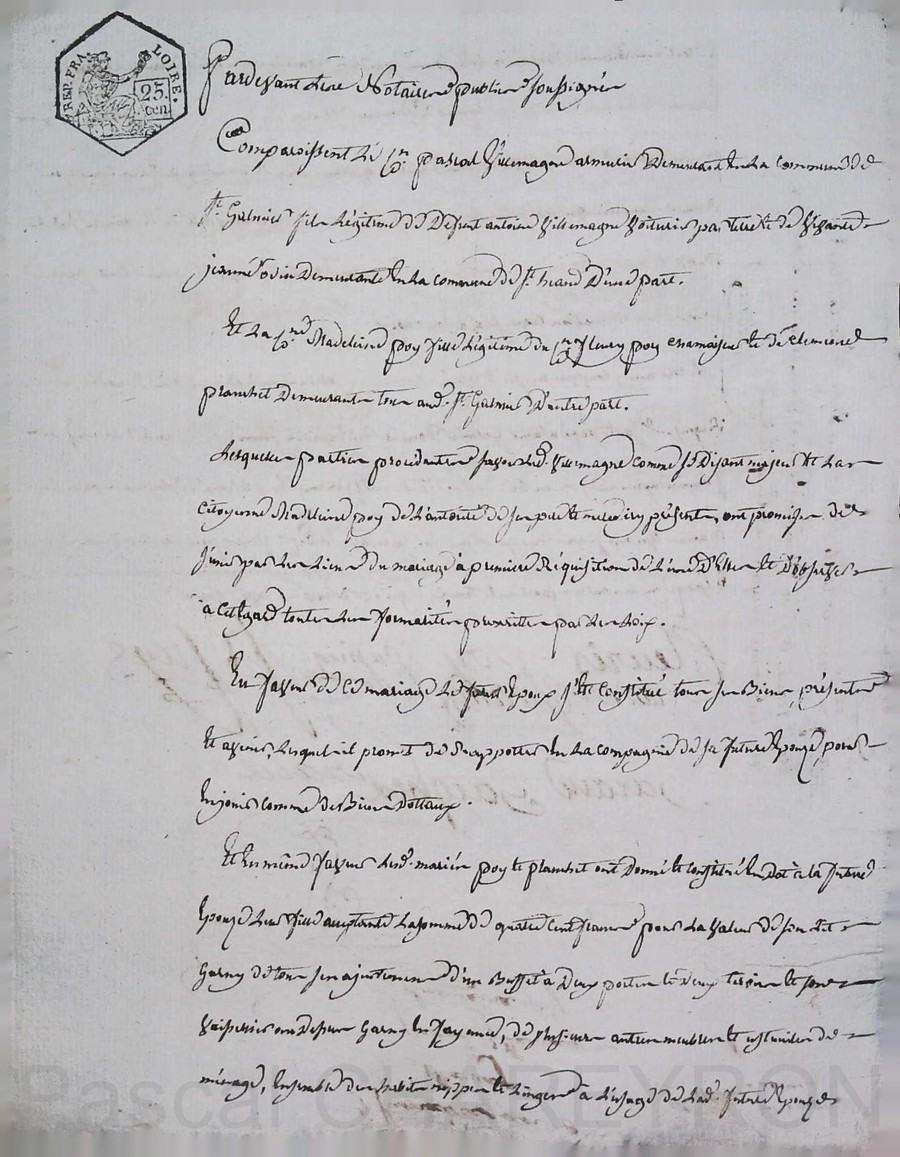 REP. FRA. LOIRE.
25. cen
Pardevant Les Notaires publics soussignés
Comparoissent Le Cn. pascal Villemagne armurier Demeurant En La commune de
St. Galmier fils Légitime de Defunt antoine Villemagne Voiturier par terre et de Vivante
jeanne Demeurante En La commune de St. heand D'une part.
Et La Cne. Madeleine poy fille Légitime du Cn. fleury poy et de Clemence
planchet Demeurants tous aud. St. Galmier D'autre part.
Lesquelles parties procedantes savoir Led. Villemagne comme se Disant majeur Et La
citoyenne Madeleine poy de L'autorité de ses pere et mere icy présents, ont promis de
s'unir par Les Liens du mariage à premiere Réquisition de L'une D'Elles Et D'observer
a cet Egard toutes Les formalités prescrittes par Les Loix.
En faveur de Ce mariage Led. futur Epoux s'est Constitué tous ses Biens présents
Et avenir, Lesquels il promet de Rapporter En La compagnie de sa future Epouze pour
En jouir comme de Biens Dottaux.
Et En même faveur Lesd. mariés poy et planchet ont Donné et constitué En Dot à la future
Epouze Leur fille acceptante La somme de quatre Cent francs pour La Valeur de son Lit
Garny de tous ses ajustements D'un Buffet à Deux portes et Deux tiroirs et son
Garny En fayence, de plusieurs autres meubles et ustenciles de
ménage, Ensemble des habits nippes et Linges à L'usage de Lad. future Epouze
Pascal C REYRON